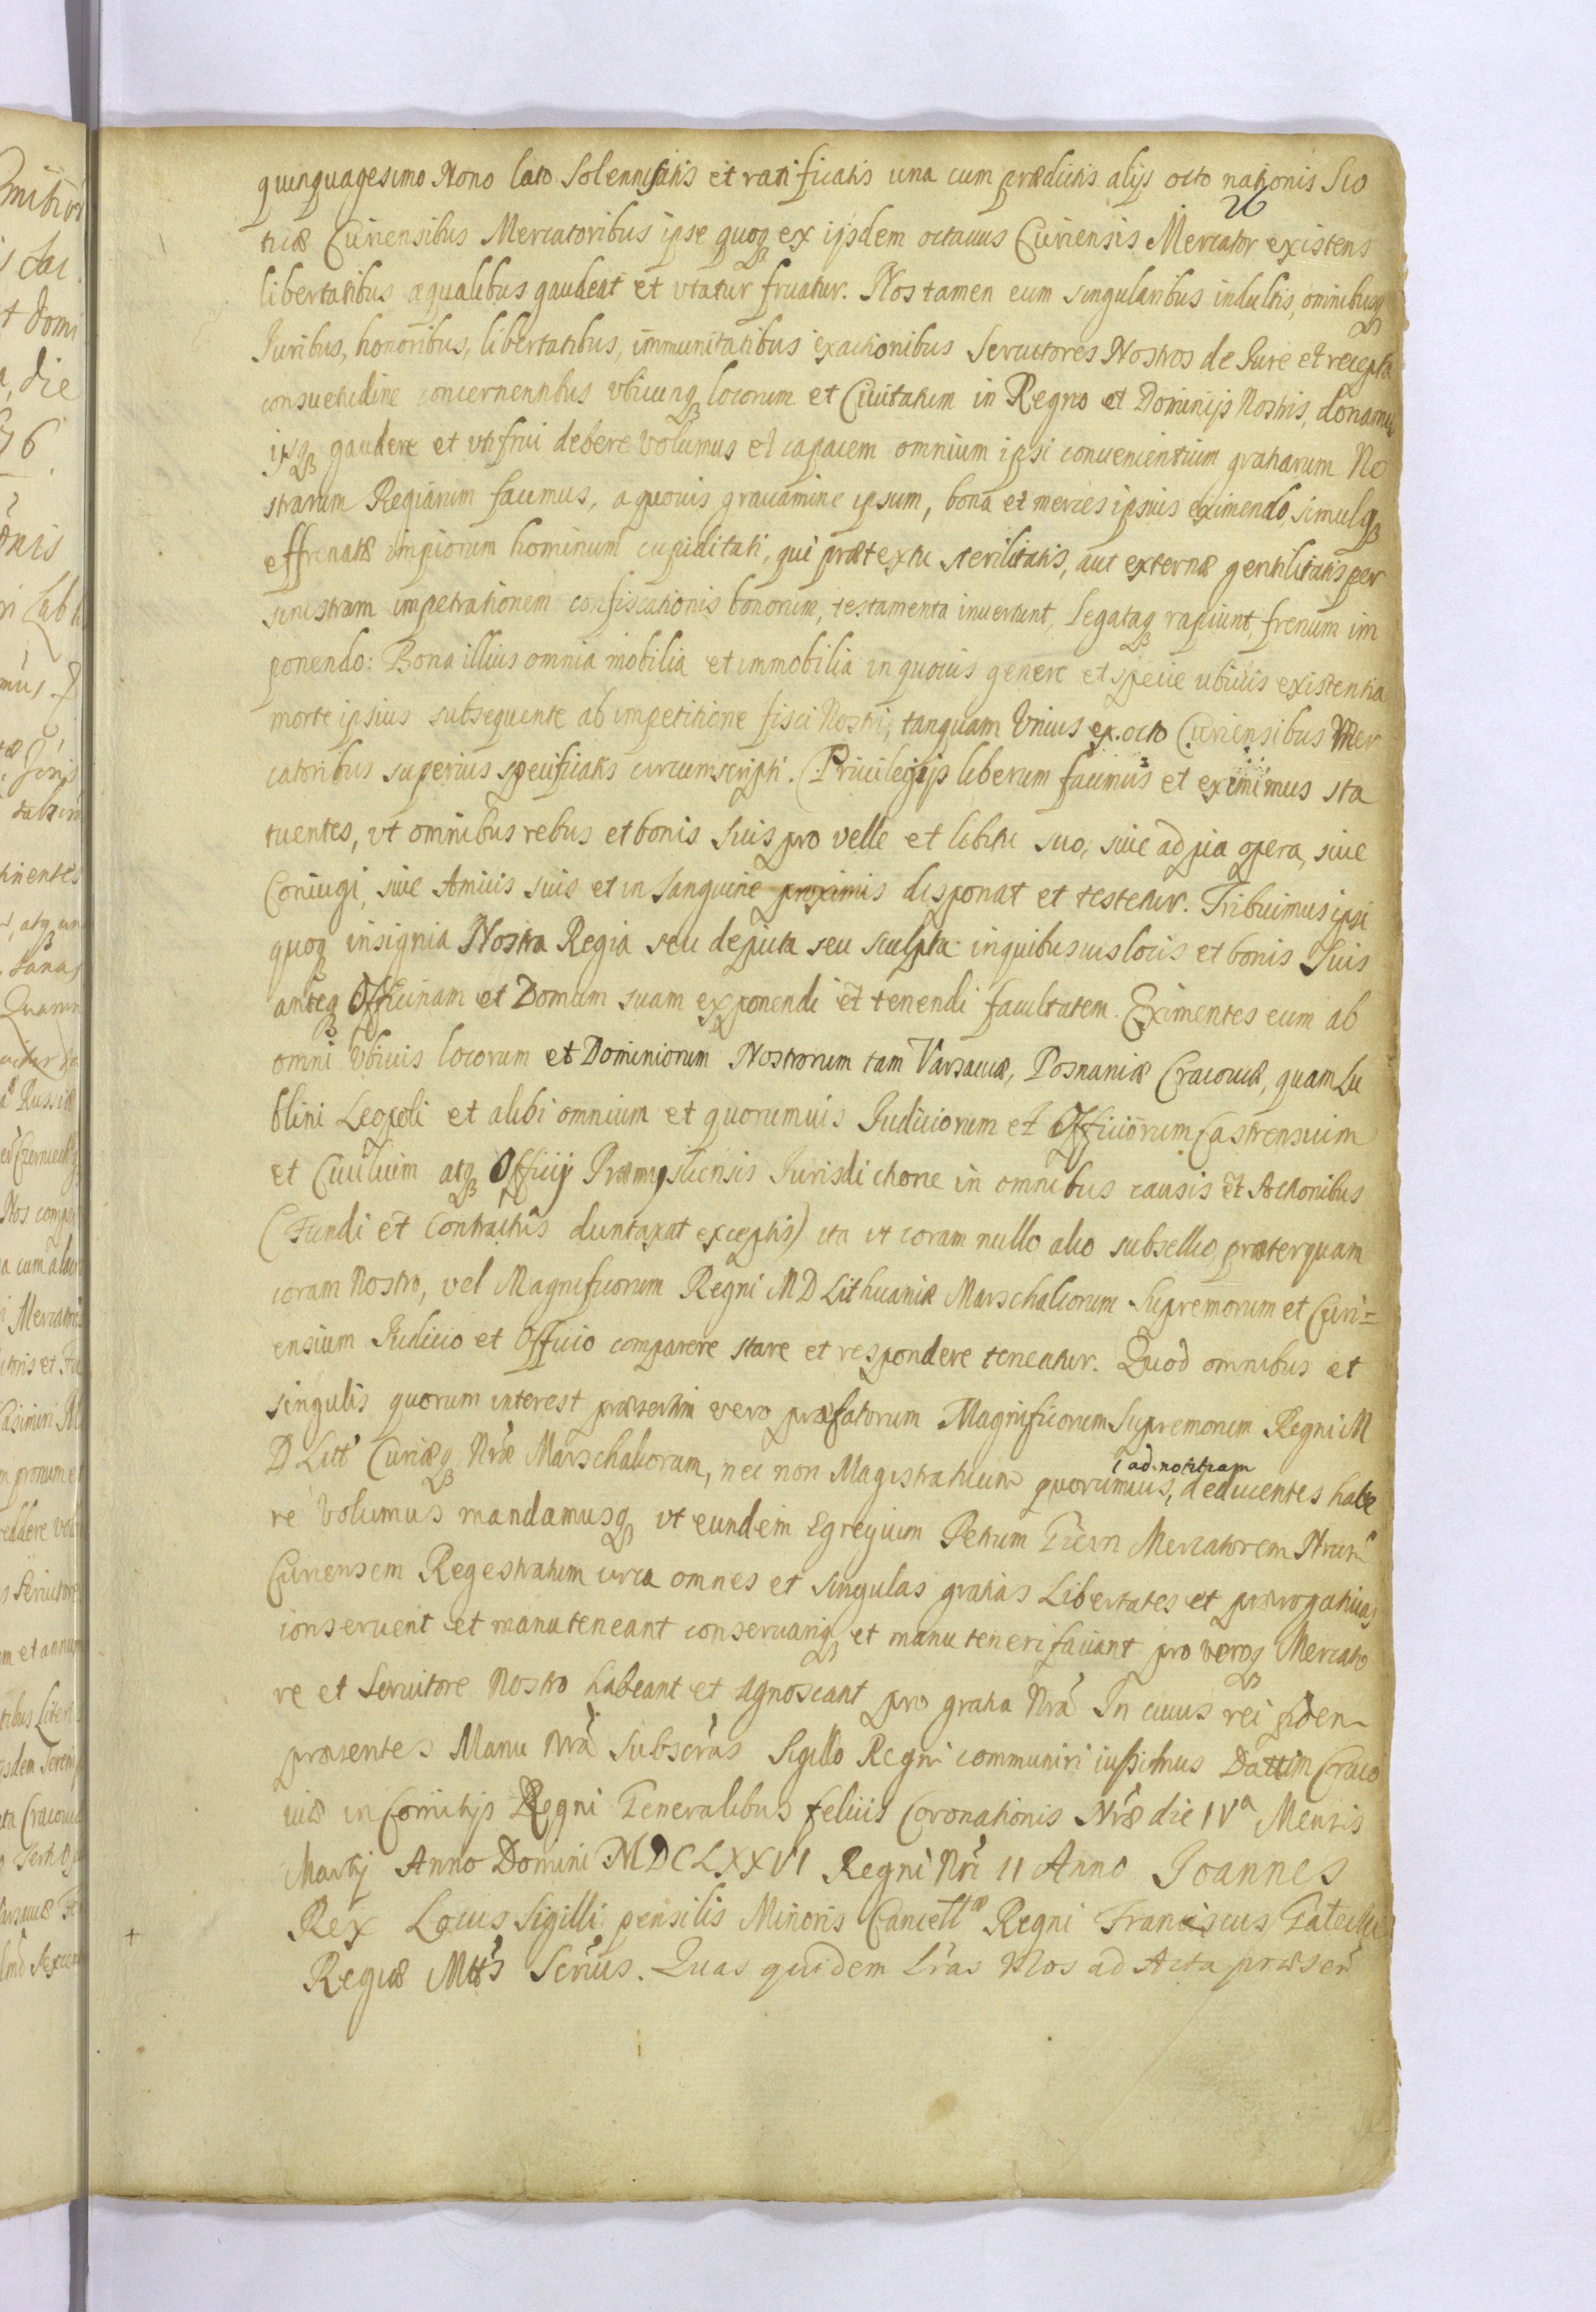 quinquagesimo Nono lato Solennisatis et ratificatis una cum prædictis alijs octo nationis Sco
26
ticæ Curiensibus Mercatoribus ipse quoqꝫ ex ijsdem octauus Curiensis Mercator existens
libertatibus æqualibus gaudeat et vtatur fruatur. Nos tamen eum singularibus indultis, omnibusqꝫ
Juribus, honoribus, libertatibus, immunitatibus exactionibus Seruitores Nostros de Jure et recepta
consuetudine concernentibus vbicunqꝫ locorum et Ciuitatum in Regno et Dominijs Nostris, donamus
ijsqꝫ gaudere et vti frui debere volumus et capacem omnium ipsi conuenientium gratiarum No
strarum Regiarum facimus, a quouis grauamine ipsum, bona et merces ipsius eximendo, simulqꝫ
effrenatæ impiorum hominum cupiditati, qui prætextu sterilitatis, aut externæ gentilitatis per
sinistram impetrationem confiscationis bonorum, testamenta inuertunt, legataqꝫ rapiunt, frenum im
ponendo: Bona illius omnia mobilia et immobilia in quouis genere et specie ubiuis existentia
morte ipsius subsequente ab impetitione fisci Nostri, tanquam Vnius ex octo Curiensibus Mer
catoribus superius specificatis circumscripti. Priuilegijs liberum facimus et eximimus sta
tuentes, vt omnibus rebus et bonis suis pro velle et libitu suo, siue ad pia opera, siue
Coniugi, siue Amicis suis et in sanguine proximis disponat et testetur. Tribuimus ipsi
quoqꝫ insignia Nostra Regia seu depicta seu sculpta in quibusuis locis et bonis Suis
anteqꝫ Officinam et Domum suam exponendi et tenendi facultatem. Eximentes eum ab
omni Vbiuis locorum et Dominiorum Nostrorum tam Varsauiæ, Posnaniæ Cracouiæ, quam Lu
blini Leopoli et alibi omnium et quorumuis Judiciorum et Officiorum Castrensium
et Ciuilium atqꝫ Officij Præmisliensis Jurisdictione in omnibus causis et Actionibus
(Fundi et Contractus duntaxat exceptis) ita vt coram nullo alio subsellio, præterquam
coram Nostro, vel Magnificorum Regni M D Lithuaniæ Marschalcorum Supremorum et Curi=
ensium Judicio et Officio comparere stare et respondere teneatur. Quod omnibus et
singulis quorum interest præsertim vero præfatorum Magnificorum Supremorum Regni M
D Litt Curiæqꝫ Nræ Marschalcorum, nec non Magistratuum quorumuis, deducentes habe
ad notitiam
re volumus mandamusqꝫ vt eundem Egregium Petrum Tiern Mercatorem Nrum
Curiensem Regestratum circa omnes et singulas gratias Libertates et prærogatiuas
conseruent et manuteneant conseruariqꝫ et manuteneri faciant pro veroqꝫ Mercato
re et Seruitore Nostro habeant et agnoscant pro gratia Nrâ In cuius rei fiden
præsentes Manu Nrâ Subscras Sigillo Regni communiri iussimus Datum Craco
uiæ in Comitijs Regni Generalibus felicis Coronationis Nræ die IVa Mensis
Martij Anno Domini MDCLXXVI Regni Nri II Anno Joannes
Rex Locus Sigilli pensilis Minoris Cancellæ Regni Franciscus
Regiæ Mttis Scrius. Quas quidem Lras Nos ad Acta præsen